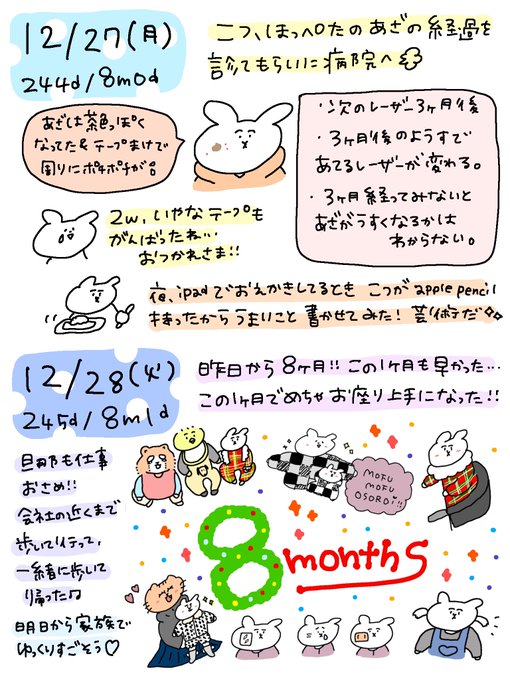 12/27(月)
244d/8m0d
こつ、ほっぺたのあざの経過を
診てもらいに病院へ
あざは茶色っぽく
なってた&テープまけで
周りにポチポチが。
・次のレーザー3ヶ月後
・3ヶ月後のようすで
あてるレーザーが変わる。
・3ヶ月経ってみないと
あざがうすくなるかは
わからない。
2w、いやなテープも
がんばったね…
おつかれさま!!
夜、iPadでおえかきしてるとき こつがapple pencil
持ったからうまいこと書かせてみた!芸術だ
12/28(火)
245d/8m1d
昨日から8ヶ月!!この1ヶ月も早かった…
この1ヶ月でめちゃお座り上手になった!!
旦那も仕事
おさめ!!
会社の近くまで
歩いて行って、
一緒に歩いて
帰った♫
明日から家族で
ゆっくりすごそう♡
MOFU
MOFU
OSOROI!!
8 months